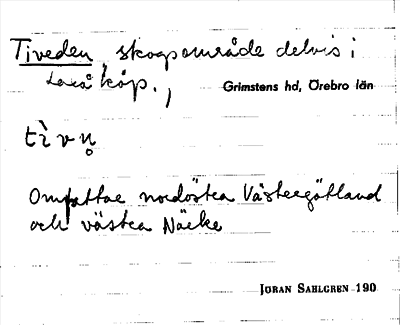 Tiveden, skogsområde delvis i
Laxå köp.,
Grimstens hd, Örebro län
tìvn̥
Omfattar nordöstra Västergötland
och västra Närke
JÖRAN SAHLGREN 190